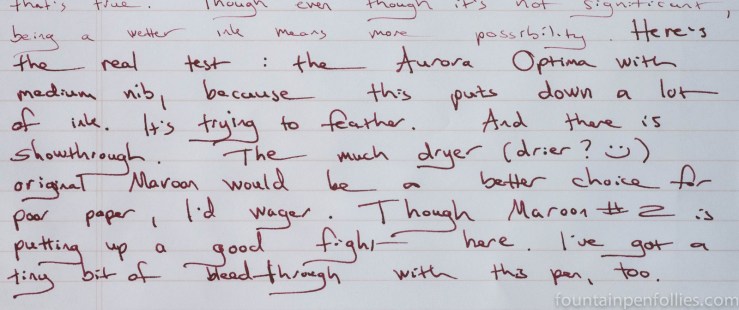 that's true. Though even though it's not significant,
being a wetter ink means more possibility. Here's
the real test : the Aurora Optima with
medium nib, because this puts down a lot
of ink. It's trying to feather. And there is
showthrough. The much dryer (drier? :))
original Maroon would be a better choice for
poor paper, I'd wager. Though Maroon #2 is
putting up a good fight here. I've got a
tiny bit of bleed-through with this pen, too.
fountainpenfollies.com